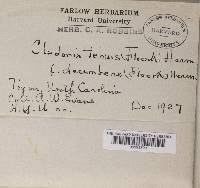 FARLOW HERBARIUM
Harvard University
HERB. C. A. ROBBINS
HARVARD
UNIVERSITY
Cladonia tenuis (Floerk.) Harm
f. decumbens (Floerk) Harm
Tryon, North Carolina
Coll. A. W. Evans
Dec 1927